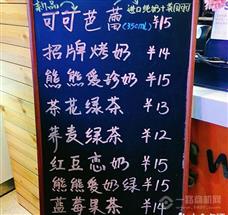 新品
进口纯奶+茶
可可芭蕾(350ml) ¥15
招牌烤奶 ¥14
熊熊爱珍奶 ¥15
茶花绿茶 ¥13
荞麦绿茶 ¥12
红豆恋奶 ¥15
熊熊爱奶绿 ¥15
蓝莓果茶 ¥14